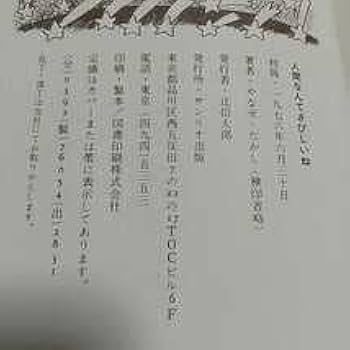 人間なんてさびしいね
初版・一九七六年六月二十日
著者・やなせ・たかし〈検印省略〉
発行者・辻信太郎
発行所・サンリオ出版
東京都品川区西五反田7の22の17TOCビル6F
電話・東京（四九四）五二五二
印刷・製本／図書印刷株式会社
定価はカバーまたは帯に表示してあります。
落丁・乱丁は当社にてお取りかえします。